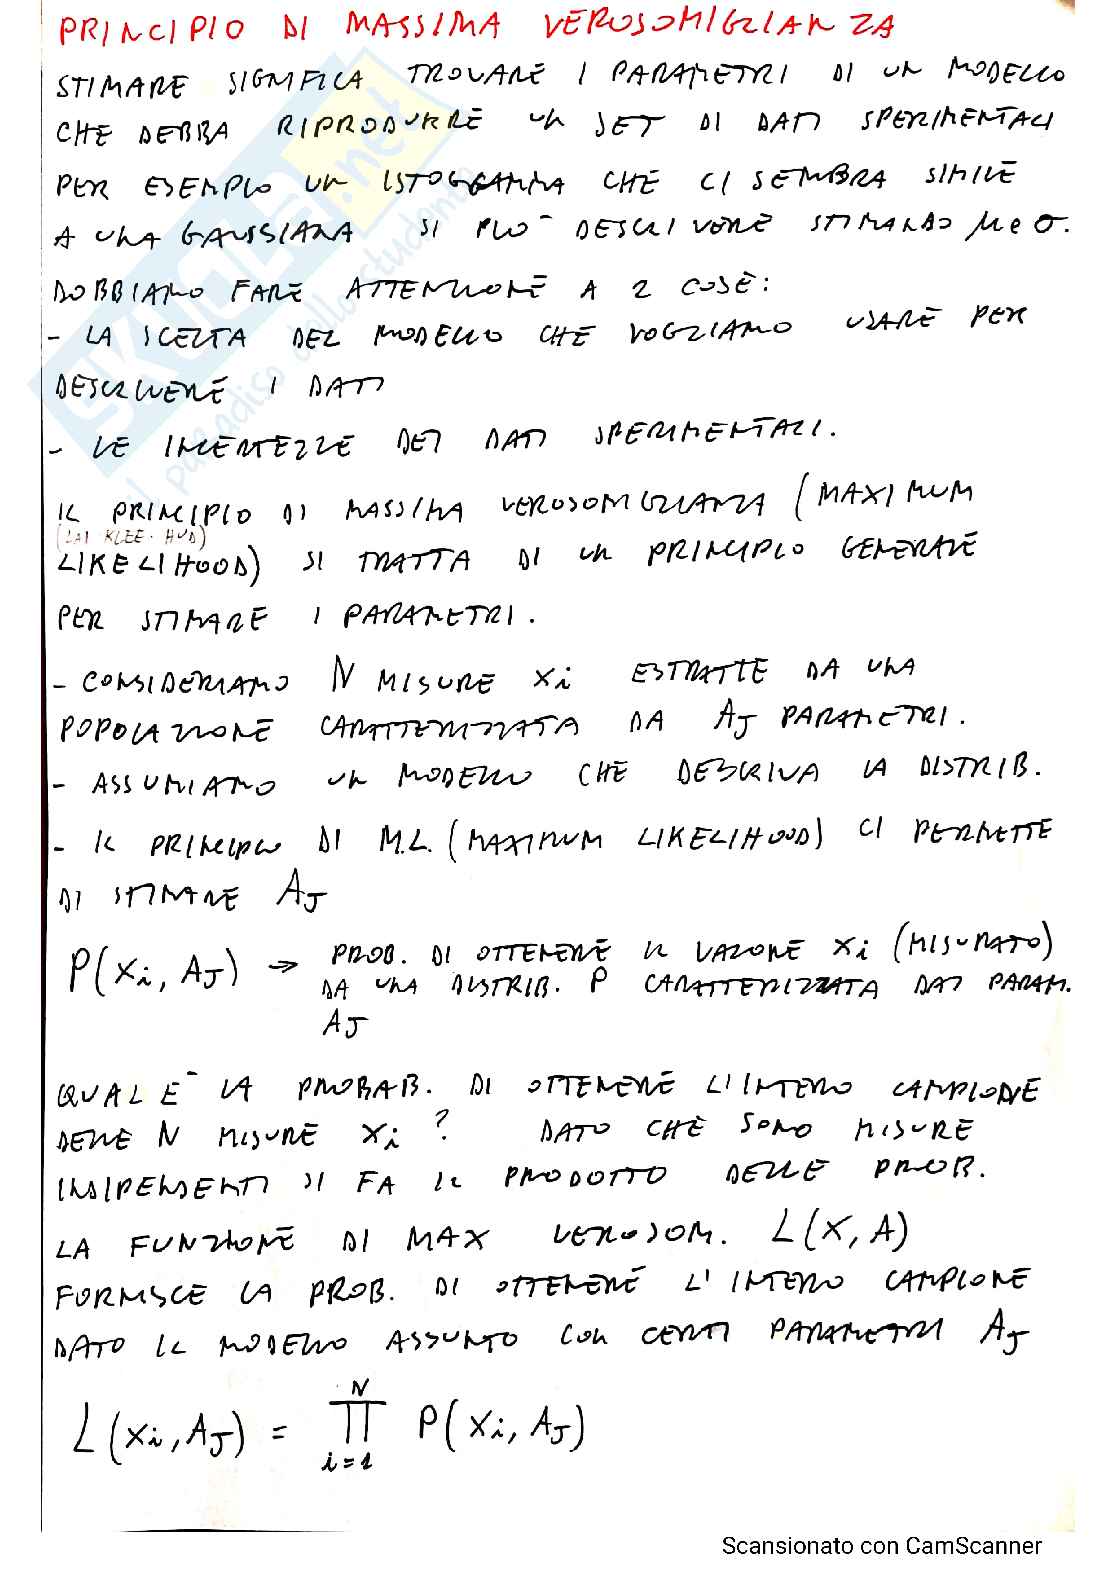 PRINCIPIO DI MASSIMA VEROSOMIGLIANZA
STIMARE SIGNIFICA TROVARE I PARAMETRI DI UN MODELLO
CHE DEBBA RIPRODURRE UN SET DI DATI SPERIMENTALI
PER ESEMPIO UN ISTOGRAMMA CHE CI SEMBRA SIMILE
A UNA GAUSSIANA SI PUÒ DESCRIVERE STIMANDO μ e σ.
DOBBIAMO FARE ATTENZIONE A 2 COSE:
- LA SCELTA DEL MODELLO CHE VOGLIAMO USARE PER
DESCRIVERE I DATI
- LE INCERTEZZE DEI DATI SPERIMENTALI.
IL PRINCIPIO DI MASSIMA VEROSOMIGLIANZA (MAXIMUM
(LAI KLEE-HUD)
LIKELIHOOD) SI TRATTA DI UN PRINCIPIO GENERALE
PER STIMARE I PARAMETRI.
- CONSIDERIAMO N MISURE xi ESTRATTE DA UNA
POPOLAZIONE CARATTERIZZATA DA AJ PARAMETRI.
- ASSUMIAMO UN MODELLO CHE DESCRIVA LA DISTRIB.
- IL PRINCIPIO DI M.L. (MAXIMUM LIKELIHOOD) CI PERMETTE
DI STIMARE AJ
P(xi, AJ) → PROB. DI OTTENERE IL VALORE xi (MISURATO)
DA UNA DISTRIB. P CARATTERIZZATA DAI PARAM.
AJ
QUAL È LA PROBAB. DI OTTENERE L'INTERO CAMPIONE
DELLE N MISURE xi? DATO CHE SONO MISURE
INDIPENDENTI SI FA IL PRODOTTO DELLE PROB.
LA FUNZIONE DI MAX VEROSOM. L(X, A)
FORNISCE LA PROB. DI OTTENERE L'INTERO CAMPIONE
DATO IL MODELLO ASSUNTO CON CERTI PARAMETRI AJ
L(xi, AJ) = ∏ i=1 N P(xi, AJ)
Scansionato con CamScanner
SKUOLA.net
il paradiso dello studente